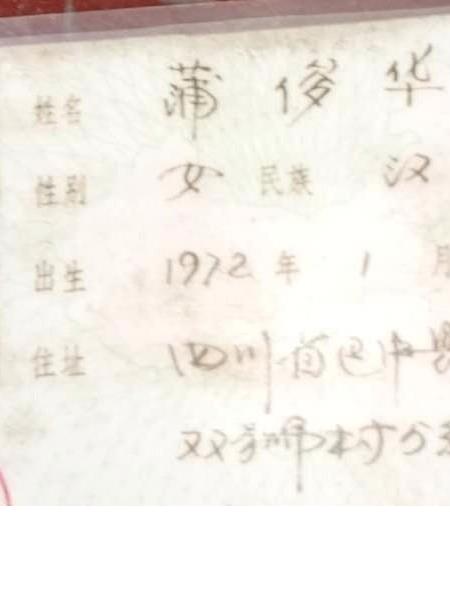 姓名 蒲俊华
性别 女 民族 汉
出生 1972年 1 月
住址 四川省巴中县
双 师村